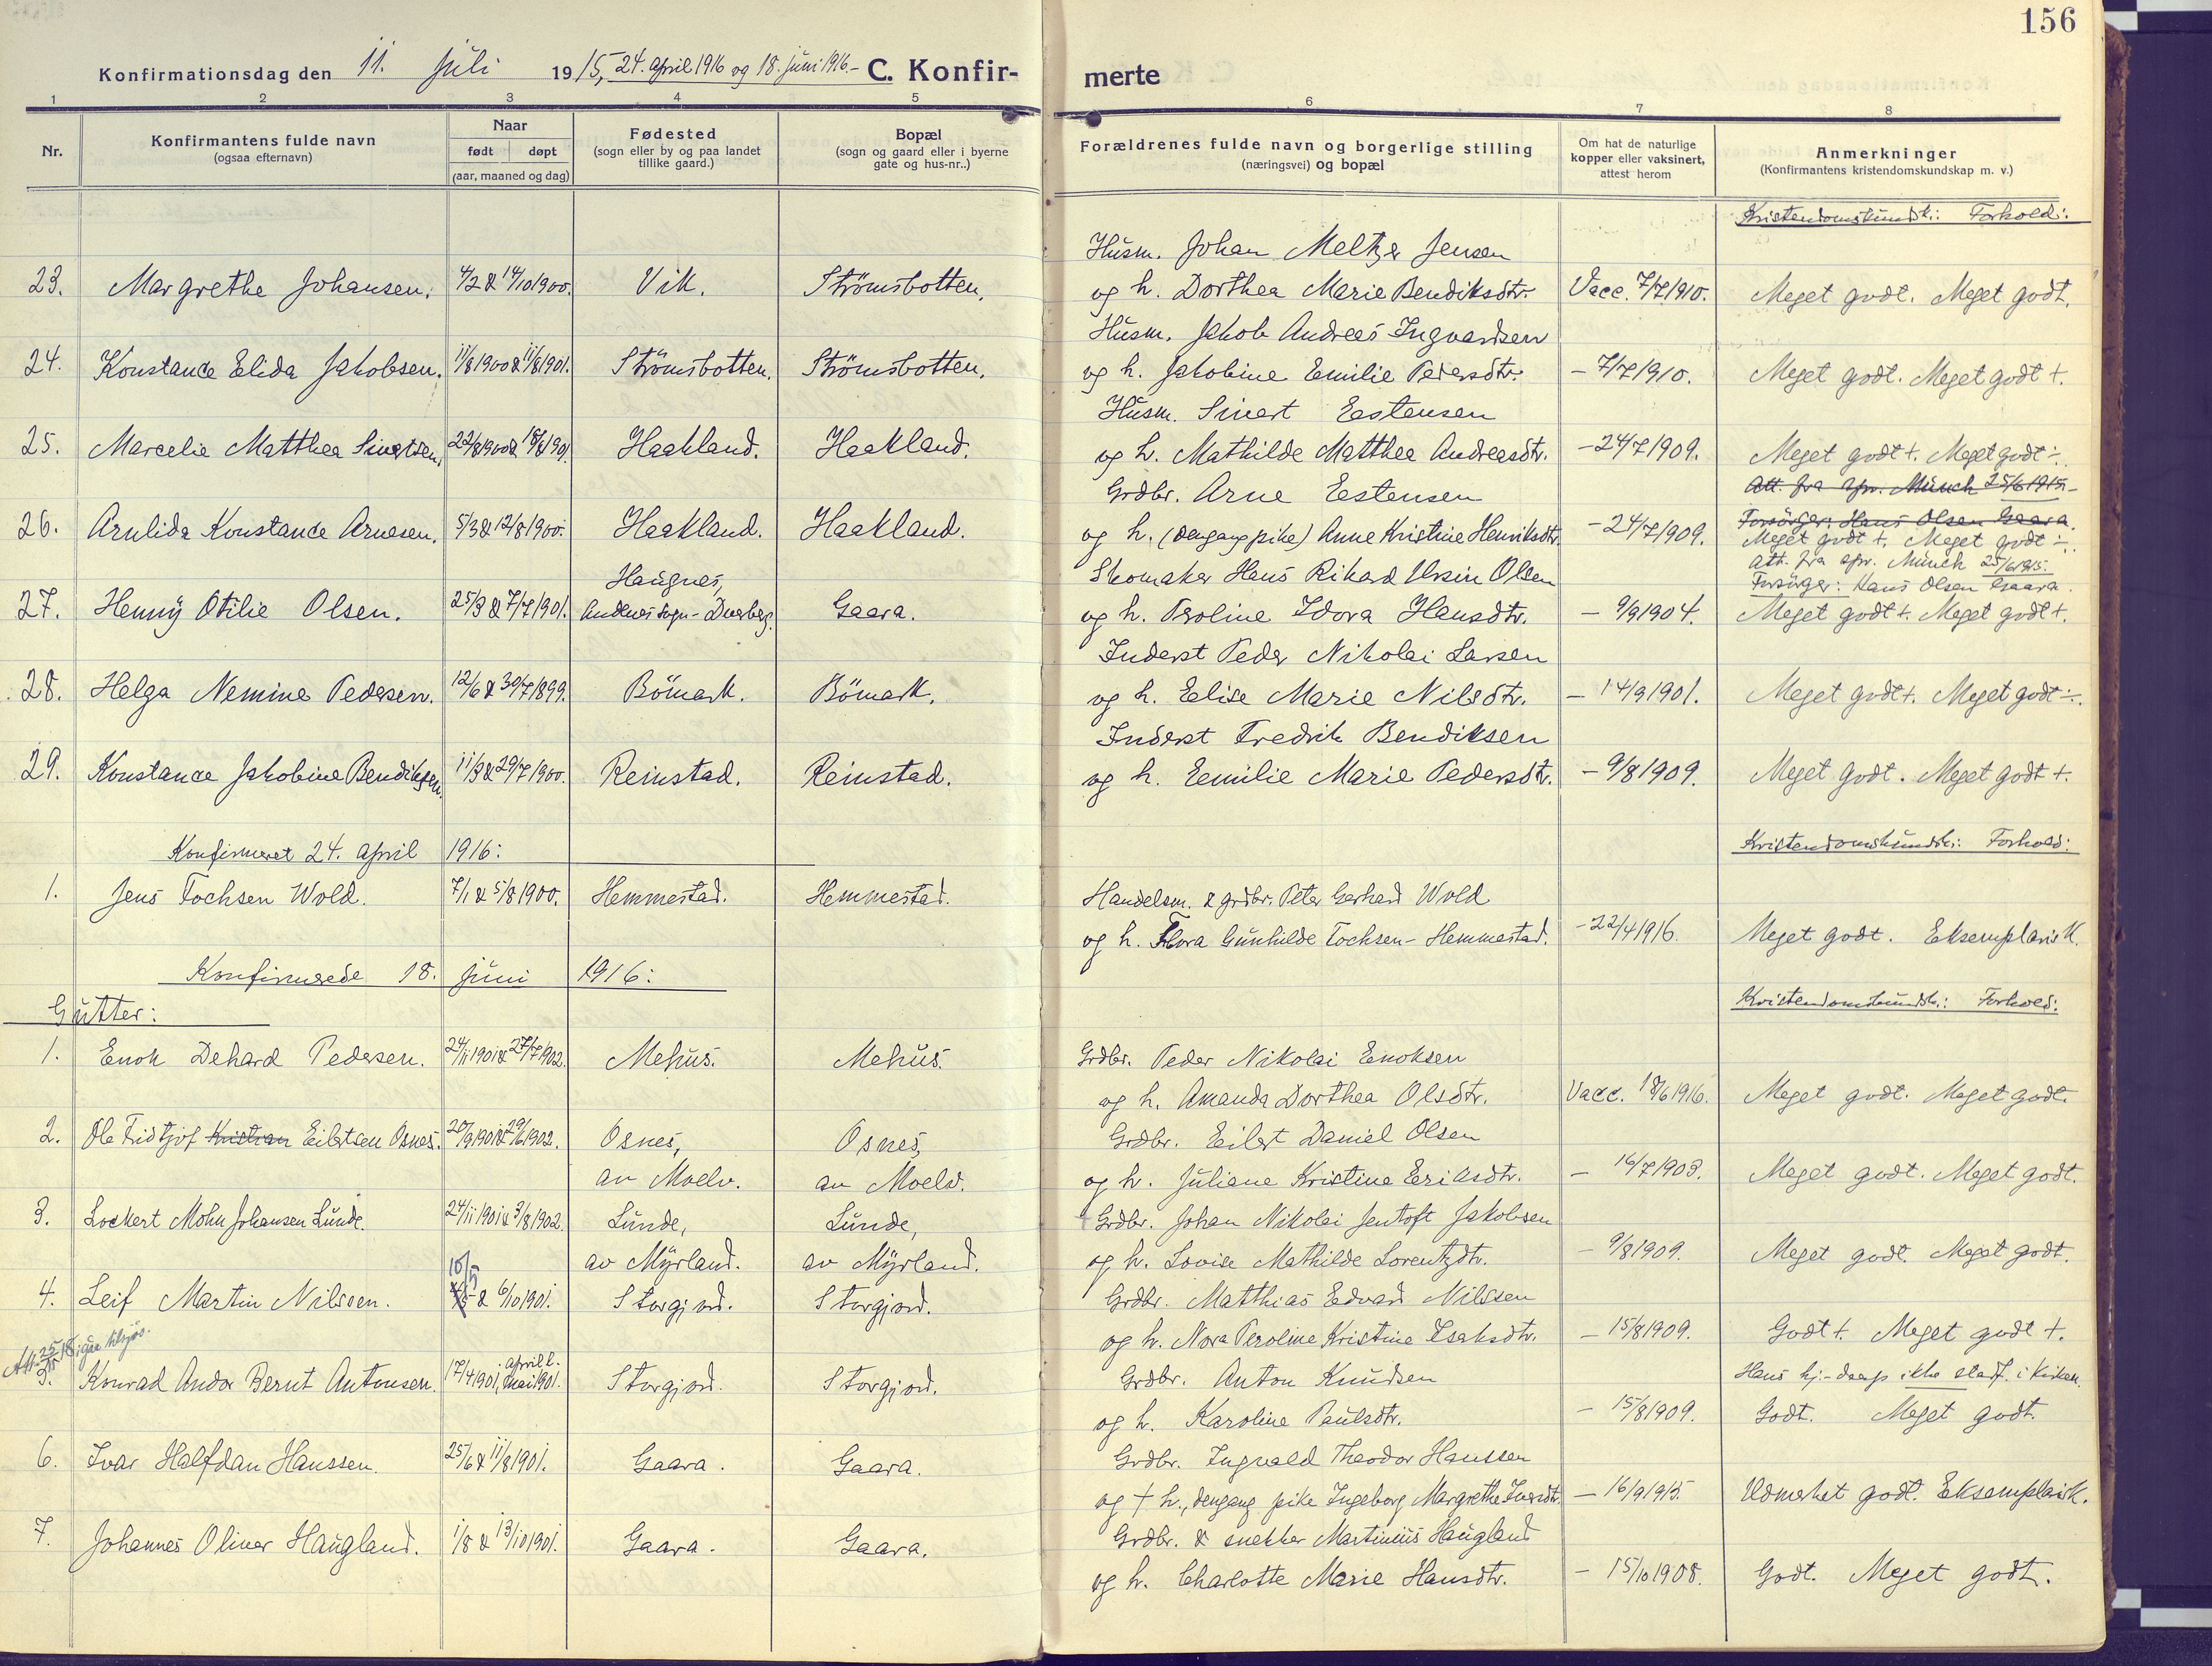 156
Konfirmationsdag den 11. Juli 1915, 24. april 1916 og 18. juni 1916.- C. Konfirmerte
1 2 3 4 5 6 7 8
Nr.
Konfirmantens fulde navn
(ogsaa efternavn)
Naar
født døpt
(aar, maaned og dag)
Fødested
(sogn eller by og paa landet
tillike gaard.)
Bopæl
(sogn og gaard eller i byerne
gate og hus-nr..)
Forældrenes fulde navn og borgerlige stilling
(næringsvei) og bopæl
Om hat de naturlige
kopper eller vaksinert,
attest herom
Anmerkninger
(Konfirmantens kristendomskundskap m. v.)
Kristendomskundsk.: Forhold:
Husm. Johan Meltzer Jensen
23. Margrethe Johansen. 4/2 & 14/10 1900. Vik. Strömsbotten. og h. Dorthea Marie Bendiksdtr. Vacc. 7/7 1910. Meget godt. Meget godt.
Husm. Jakob Andreas Ingvardsen
24. Konstance Elida Jakobsen. 11/8 1900 & 11/8 1901. Strömsbotten. Strömsbotten. og h. Jakobine Emilie Pedersdtr. – 7/7 1910. Meget godt. Meget godt +.
Husm. Sivert Eestensen
25. Marcelie Matthea Sivertsen. 22/8 1900 & 18/8 1901. Haakland. Haakland. og h. Mathilde Matthea Andreasdtr. – 24/7 1909. Meget godt +. Meget godt ÷.
Grdbr. Arne Eestensen Att. fra spr. Münch 25/6 1915.
26. Arnlida Konstance Arnesen. 5/3 & 12/8 1900. Haakland. Haakland. og h. (dengang pike) Anne Kristine Henriksdtr. – 24/7 1909. Forsörger: Hans Olsen Gaara.
Meget godt +. Meget godt ÷.
Skomaker Hans Rikard Ursin Olsen Att. fra spr. Münch 25/6 1915.
Forsörger: Hans Olsen Gaara.
27. Henny Otilie Olsen. 25/3 & 7/7 1901. Haugnes, Andenes sogn - Dverberg. Gaara. og h. Peroline Idora Hansdtr. – 9/9 1904. Meget godt +. Meget godt +.
Inderst Peder Nikolai Larsen
28. Helga Nemine Pedersen. 12/6 & 30/7 1899. Bömark. Bömark. og h. Elise Marie Nilsdtr. – 14/9 1901. Meget godt +. Meget godt ÷.
Inderst Fredrik Bendiksen
29. Konstance Jakobine Bendiksen. 11/3 & 29/7 1900. Reinstad. Reinstad. og h. Emilie Marie Pedersdtr. – 9/8 1909. Meget godt. Meget godt +.
Konfirmeret 24. april 1916: Kristendomskundsk.: Forhold:
1. Jens Tochsen Wold. 7/1 & 5/8 1900. Hemmestad. Hemmestad. Handelsm. & grdbr. Peter Gerhard Wold
og h. Flora Gunhilde Tochsen - Hemmestad. – 22/4 1916. Meget godt. Eksemplarisk.
Konfirmerede 18. juni 1916:
Gutter: Kristendomskundsk.: Forhold:
1. Enok Dehard Pedersen. 24/11 1901 & 27/7 1902. Mehus. Mehus. Grdbr. Peder Nikolai Enoksen
og h. Amanda Dorthea Olsdtr. Vacc. 18/6 1916. Meget godt. Meget godt.
2. Ole Fridtjof Kristian Eilertsen Osnes. 20/9 1901 & 29/6 1902. Osnes, Osnes, Grdbr. Eilert Daniel Olsen
av Moelv. av Moelv. og h. Juliane Kristine Eriksdtr. – 16/7 1903. Meget godt. Meget godt.
3. Lockert Mohn Johansen Lunde. 24/11 1901 & 3/8 1902. Lunde, Lunde, Grdbr. Johan Nikolai Jentoft Jakobsen
av Myrland. av Myrland. og h. Lovise Mathilde Lorentzdtr. – 9/8 1909. Meget godt. Meget godt.
4. Leif Martin Nilssen. 10/5 & 6/10 1901. Storgjord. Storgjord. Grdbr. Matthias Edvard Nilssen
og h. Nora Peroline Kristine Isaksdtr. – 15/8 1909. Godt +. Meget godt +.
5. Konrad Andor Bernt Antonsen. 17/4 1901, april l. mai 1901. Storgjord. Storgjord. Grdbr. Anton Knudsen Hans hj.-daap ikke stadf. i kirken.
og h. Karoline Paulsdtr. – 15/8 1909. Godt. Meget godt.
6. Ivar Halfdan Hanssen. 25/6 & 11/8 1901. Gaara. Gaara. Grdbr. Ingvald Theodor Hanssen
og † h., dengang pike Ingeborg Margrethe Iversdtr. – 16/9 1915. Udmerket godt. Eksemplarisk.
7. Johannes Oliver Haugland. 1/8 & 13/10 1901. Gaara. Gaara. Grdbr. & snekker Martinius Haugland
og h. Charlotte Marie Hansdtr. – 15/10 1908. Godt. Meget godt.